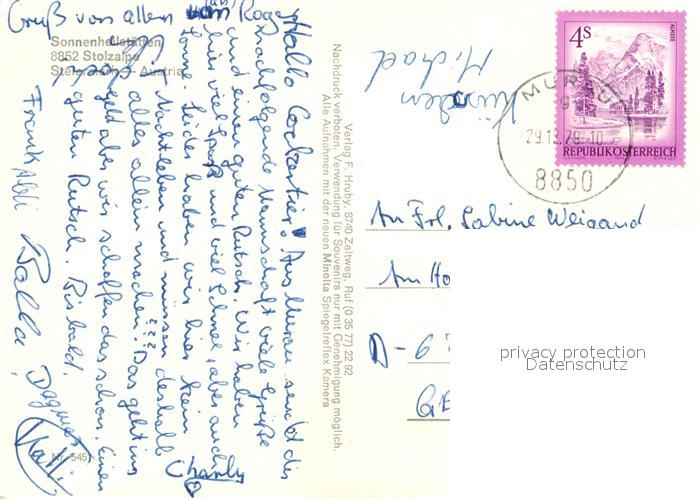 Gruß von allen
Sonnenheilstätten
8852 Stolzalpe
Steiermark – Austria
Hallo Aus Murau sendet die
nachfolgende Mannschaft viele Grüße
und einen guten Rutsch. Wir haben
hier viel Spaß und viel Schnee, aber auch
Sonne. Leider haben wir hier kein
Nachtleben und müssen deshalb
alles allein machen! Das geht ins
Geld aber wir schaffen das schon. Einen
guten Rutsch. Bis bald,
Charly
Frank
Dagmar
Nr. 545
Nachdruck verboten, Verwendung für Souvenirs nur mit Genehmigung möglich.
Verlag F. Hruby, 8740 Zeltweg, Ruf (0 35 77) 22 92
Alle Aufnahmen mit der neuen Minolta Spiegelreflex Kamera
Michael
4S
ALMSEE
REPUBLIK ÖSTERREICH
MURAU
8850
An Frl. Sabine Weigand
Am
D-6
privacy protection
Datenschutz